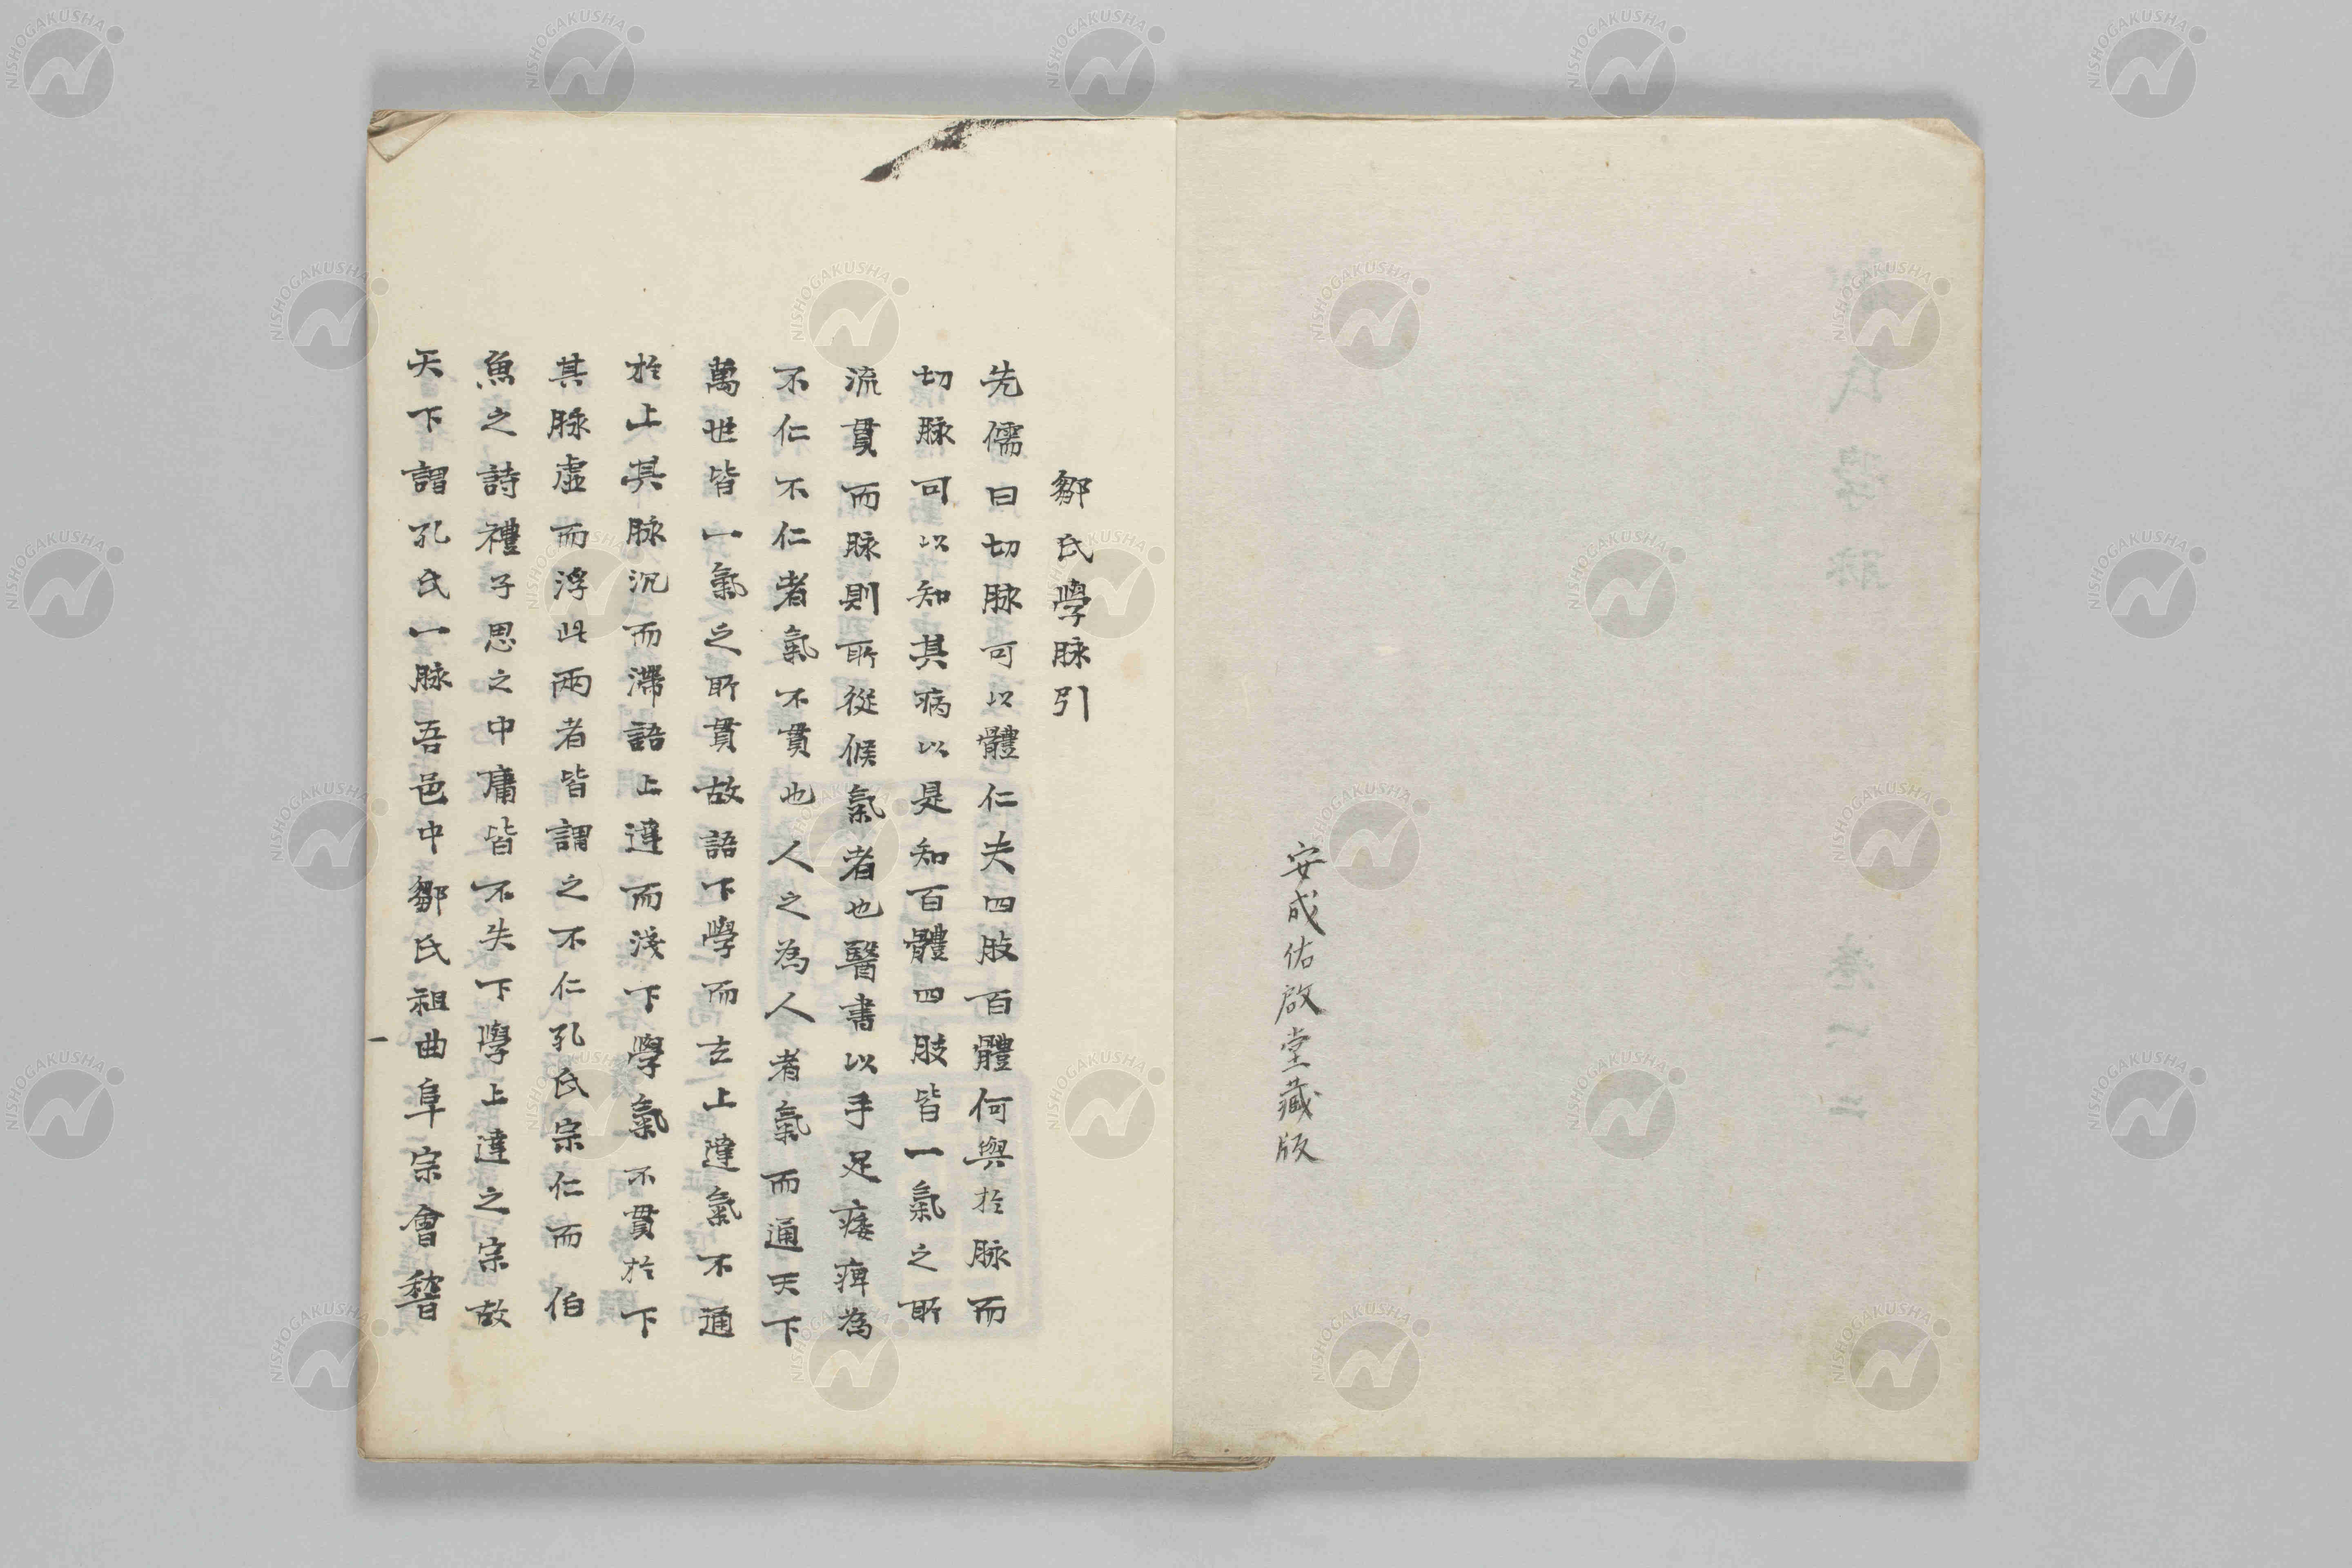 安成佑啟堂藏版
鄒氏學脉引
先儒曰切脉可以體仁夫四肢百體何與於脉而
切脉可以知其病以是知百體四肢皆一氣之所
流貫而脉則所從候氣者也醫書以手足痿痺為
不仁不仁者氣不貫也人之為人者氣而通天下
萬世皆一氣之所貫故語下學而去上達氣不通
於上其脉沉而滯語上達而淺下學氣不貫於下
其脉虛而浮此兩者皆謂之不仁孔氏宗仁而伯
魚之詩禮子思之中庸皆不失下學上達之宗故
天下謂孔氏一脉吾邑中鄒氏祖曲阜宗會稽
NISHOGAKUSHA